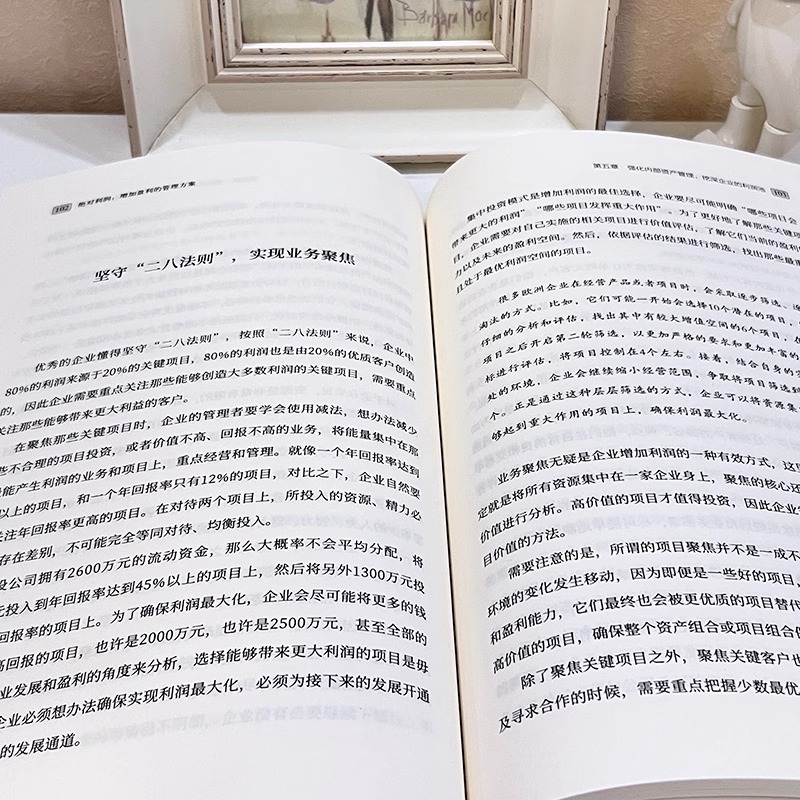 Barbara Moc
102 绝对利润：增加盈利的管理方案
坚守“二八法则”，实现业务聚焦
优秀的企业懂得坚守“二八法则”，按照“二八法则”来说，企业中
80%的利润来源于20%的关键项目，80%的利润也是由20%的优质客户创造
的，因此企业需要重点关注那些能够创造大多数利润的关键项目，需要重点
关注那些能够带来更大利益的客户。
在聚焦那些关键项目时，企业的管理者要学会使用减法，想办法减少
些不合理的项目投资，或者价值不高、回报不高的业务，将能量集中在那
能产生利润的业务和项目上，重点经营和管理。就像一个年回报率达到
以上的项目，和一个年回报率只有12%的项目，对比之下，企业自然要
关注年回报率更高的项目。在对待两个项目上，所投入的资源、精力必
存在差别，不可能完全等同对待、均衡投入。
设公司拥有2600万元的流动资金，那么大概率不会平均分配，将
元投入到年回报率达到45%以上的项目上，然后将另外1300万元投
回报率的项目上。为了确保利润最大化，企业会尽可能将更多的钱
高回报的项目，也许是2000万元，也许是2500万元，甚至全部的
业发展和盈利的角度来分析，选择能够带来更大利润的项目是毋
企业必须想办法确保实现利润最大化，必须为接下来的发展开通
的发展通道。
第五章 强化内部资产管理，挖深企业的利润池 103
集中投资模式是增加利润的最佳选择，企业要尽可能明确“哪些项目会
带来更大的利润”“哪些项目发挥重大作用”。为了更好地了解那些关键项
目，企业需要对自己实施的相关项目进行价值评估，了解它们当前的盈利
力以及未来的盈利空间。然后，依据评估的结果进行筛选，找出那些最
且处于最优利润空间的项目。
很多欧洲企业在经营产品或者项目时，会采取逐步筛选、逐
淘汰的方式。比如，它们可能一开始会选择10个潜在的项目，
行细的分析和评估，找出其中有较大增值空间的6个项目，在
项目之后开启第二轮筛选，以更加严格的要求和更加丰富的
标进行评估，将项目控制在4个左右。接着，结合自身的
处的环境，企业会继续缩小经营范围，争取将项目筛选到
个。正是通过这种层层筛选的方式，企业可以将资源集
够起到重大作用的项目上，确保利润最大化。
业务聚焦无疑是企业增加利润的一种有效方式，这
定就是将所有资源集中在一家企业身上，聚焦的核心还
价值进行分析。高价值的项目才值得投资，因此企业
目价值的方法。
需要注意的是，所谓的项目聚焦并不是一成不
环境的变化发生移动，因为即便是一些好的项目，
和盈利能力，它们最终也会被更优质的项目替代
高价值的项目，确保整个资产组合或项目组合
除了聚焦关键项目之外，聚焦关键客户也
及寻求合作的时候，需要重点把握少数最优